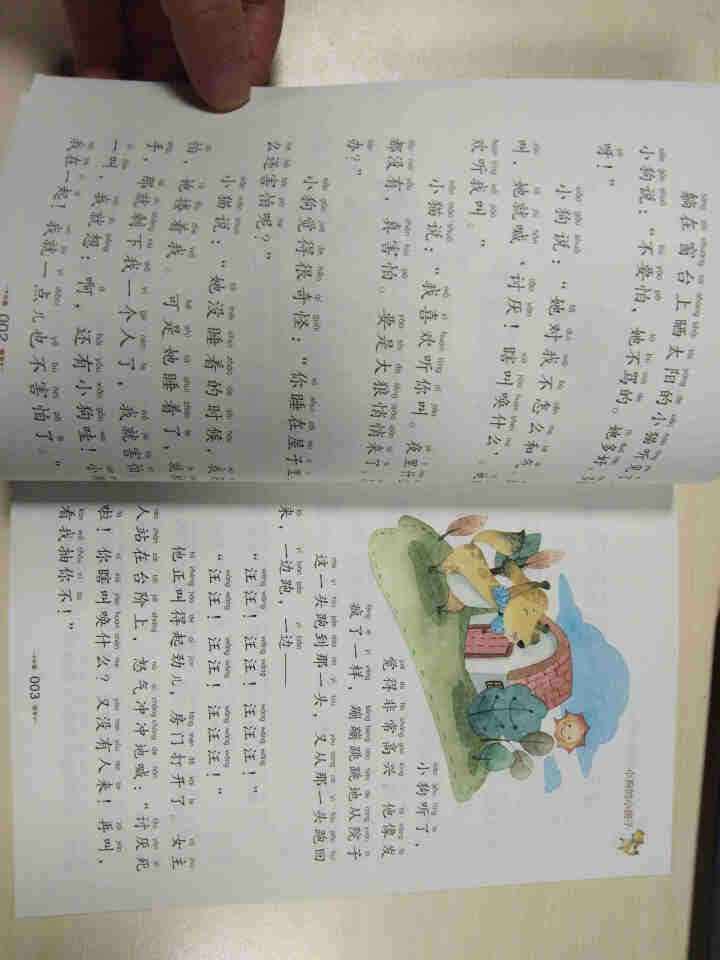 躺在窗台上晒太阳的小猫听见了
小狗说：“不要怕，她不骂的。她多好
呀！”
小狗说：“她对我不怎么和气
叫，她就喊‘讨厌！瞎叫唤什么’，
欢听我叫。”
小猫说：“我喜欢听你叫。夜里什
都没有，真害怕。要是大狼悄悄来了，
办？”
小狗觉得很奇怪：“你睡在屋子里
么还害怕呢？”
小猫说：“她没睡着的时候，我
怕，她搂着我。可是她睡着了，
手，那就剩下我一个人了，我就害怕
一叫，我就想：啊，还有小狗哇！小
我在一起！我就一点儿也不害怕了。”
002
小狗的小房子
小狗听了，
觉得非常高兴。他像发
疯了一样，蹦蹦跳跳地从院子
这一头跑到那一头，又从那一头跑回
来，一边跑，一边——
“汪汪！汪汪！汪汪！”
“汪汪！汪汪！汪汪！”
他正叫得起劲儿，房门打开了。女主
人站在台阶上，怒气冲冲地喊：“讨厌死
啦！你瞎叫唤什么？又没有人来！再叫，
看我抽你不！”
003